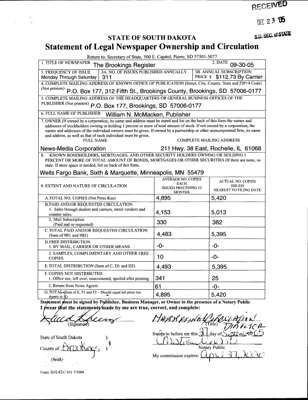 RECEIVED
DEC 23 05
S.D. SEC. OF STATE
STATE OF SOUTH DAKOTA
Statement of Legal Newspaper Ownership and Circulation
Return to: Secretary of State, 500 E. Capitol, Pierre, SD 57501-5077
1. TITLE OF NEWSPAPER The Brookings Register
2. DATE 09-30-05
3. FREQUENCY OF ISSUE Monday Through Saturday
3A. NO. OF ISSUES PUBLISHED ANNUALLY 311
3B. ANNUAL SUBSCRIPTION PRICE $ $112.73 By Carrier
4. COMPLETE MAILING ADDRESS OF KNOWN OFFICE OF PUBLICATION (Street, City, County, State and ZIP+4 Code)
(Not printers) P.O. Box 177, 312 Fifth St., Brookings County, Brookings, SD 57006-0177
5. COMPLETE MAILING ADDRESS OF THE HEADQUARTERS OF GENERAL BUSINESS OFFICES OF THE
PUBLISHER (Not printers) P.O. Box 177, Brookings, SD 57006-0177
6. FULL NAME OF PUBLISHER: William N. McMacken, Publisher
7. OWNER (If owned by a corporation, its name and address must be stated and list on the back of this form the names and
addresses of stockholders owning or holding 1 percent or more of total amount of stock. If not owned by a corporation, the
names and addresses of the individual owners must be given. If owned by a partnership or other unincorporated firm, its name
and address, as well as that of each individual must be given.
FULL NAME COMPLETE MAILING ADDRESS
News-Media Corporation 211 Hwy. 38 East, Rochelle, IL 61068
8. KNOWN BONDHOLDERS, MORTGAGES, AND OTHER SECURITY HOLDERS OWNING OR HOLDING 1
PERCENT OR MORE OF TOTAL AMOUNT OF BONDS, MORTGAGES OR OTHER SECURITIES (If there are none, so
state. If more space is needed, list on back of this form.
Wells Fargo Bank, Sixth & Marquette, Minneapolis, MN 55479
9. EXTENT AND NATURE OF CIRCULATION
AVERAGE NO. COPIES EACH ISSUED PRECEDING 12 MONTHS
ACTUAL NO. COPIES ISSUED NEAREST TO FILING DATE
A. TOTAL NO. COPIES (Net Press Run) 4,895 5,420
B. PAID AND/OR REQUESTED CIRCULATION
1. Sales through dealers and carriers, street vendors and counter sales 4,153 5,013
2. Mail Subscription (Paid and or requested) 330 382
C. TOTAL PAID AND/OR REQUESTED CIRCULATION (Sum of 9B1 and 9B2) 4,483 5,395
D. FREE DISTRIBUTION
1. BY MAIL, CARRIER OR OTHER MEANS -0- -0-
2. SAMPLES, COMPLIMENTARY AND OTHER FREE COPIES 10 -0-
E. TOTAL DISTRIBUTION (Sum of C, D1 and D2) 4,493 5,395
F. COPIES NOT DISTRIBUTED
1. Office use, left over, unaccounted, spoiled after printing 341 25
2. Return from News Agents 61 -0-
G. TOTAL (Sum of E, F1 and F2 - Should equal net press run shown in A) 4,895 5,420
Statement must be signed by Publisher, Business Manager, or Owner in the presence of a Notary Public
I swear that the statements made by me are true, correct, and complete:
(Signature)
(Title)
State of South Dakota )
County of Brookings )
(Seal)
Sworn to before me this
Notary Public
My commission expires: